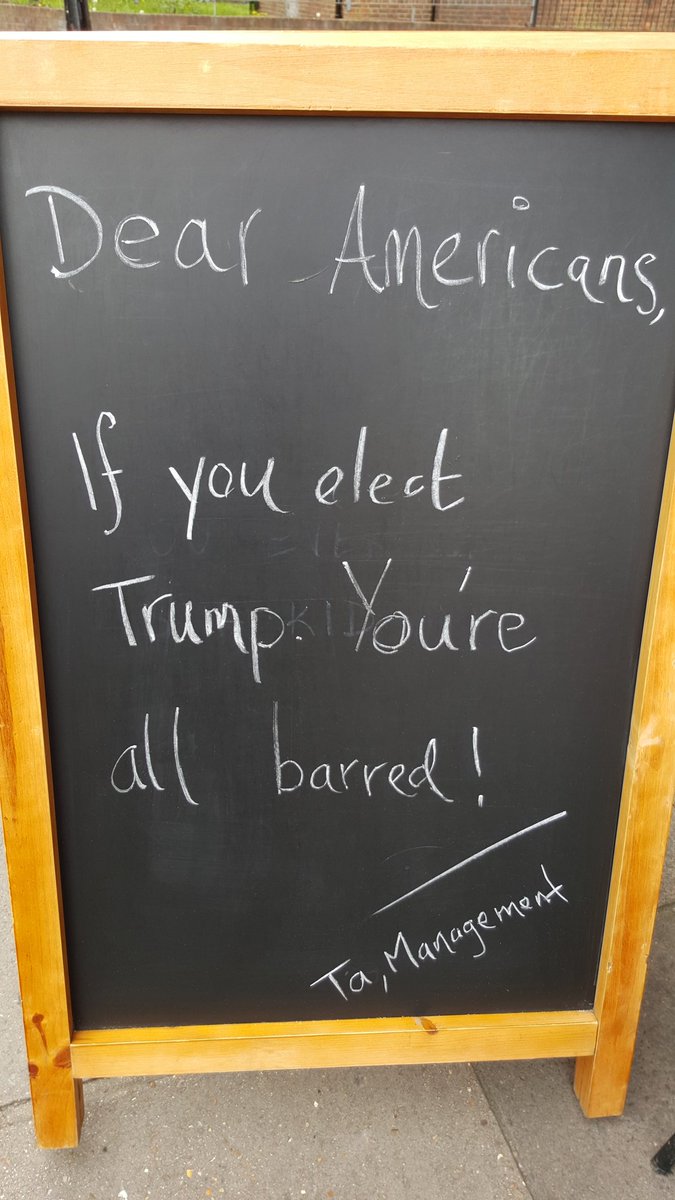 Dear Americans,
If you elect
Trump. You're
all barred!
Ta, Management